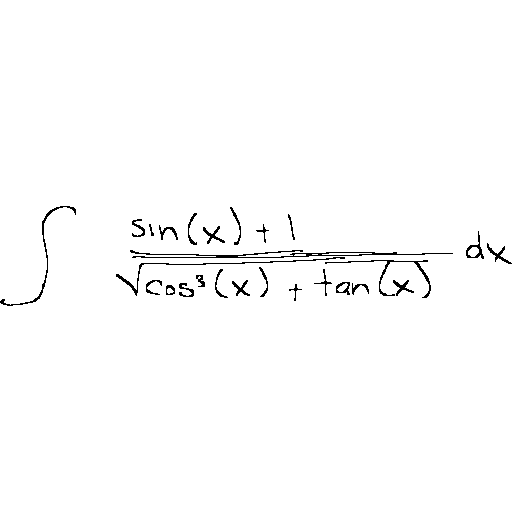 ∫ sin(x) + 1 / √(cos³(x) + tan(x)) dx